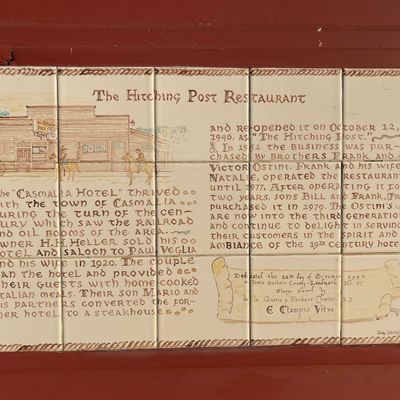 The Hitching Post Restaurant
The "Casmalia Hotel" thrived
with the town of Casmalia
during the turn of the cen-
tury which saw the railroad
and oil booms of the area.
Owner H.H. Heller sold his
hotel and saloon to Paul Veglia
and his wife in 1920. The couple
ran the hotel and provided
their guests with home-cooked
Italian meals. Their son Mario and
his partners converted the for-
mer hotel to a steakhouse
and re-opened it on October 12,
1946, as "The Hitching Post."
In 1952 the business was pur-
chased by brothers Frank and
Victor Ostini. Frank and his wife,
Natalie, operated the restaurant
until 1977. After operating it for
two years, sons Bill and Frank, Jr.
purchased it in 1979. The Ostini's
are now into the third generation
and continue to delight in serving
their customers in the spirit and
ambiance of the 19th century hotel.
Dedicated this day of
Santa Barbara County Landmark No. 37
Plaque placed by
E Clampus Vitus